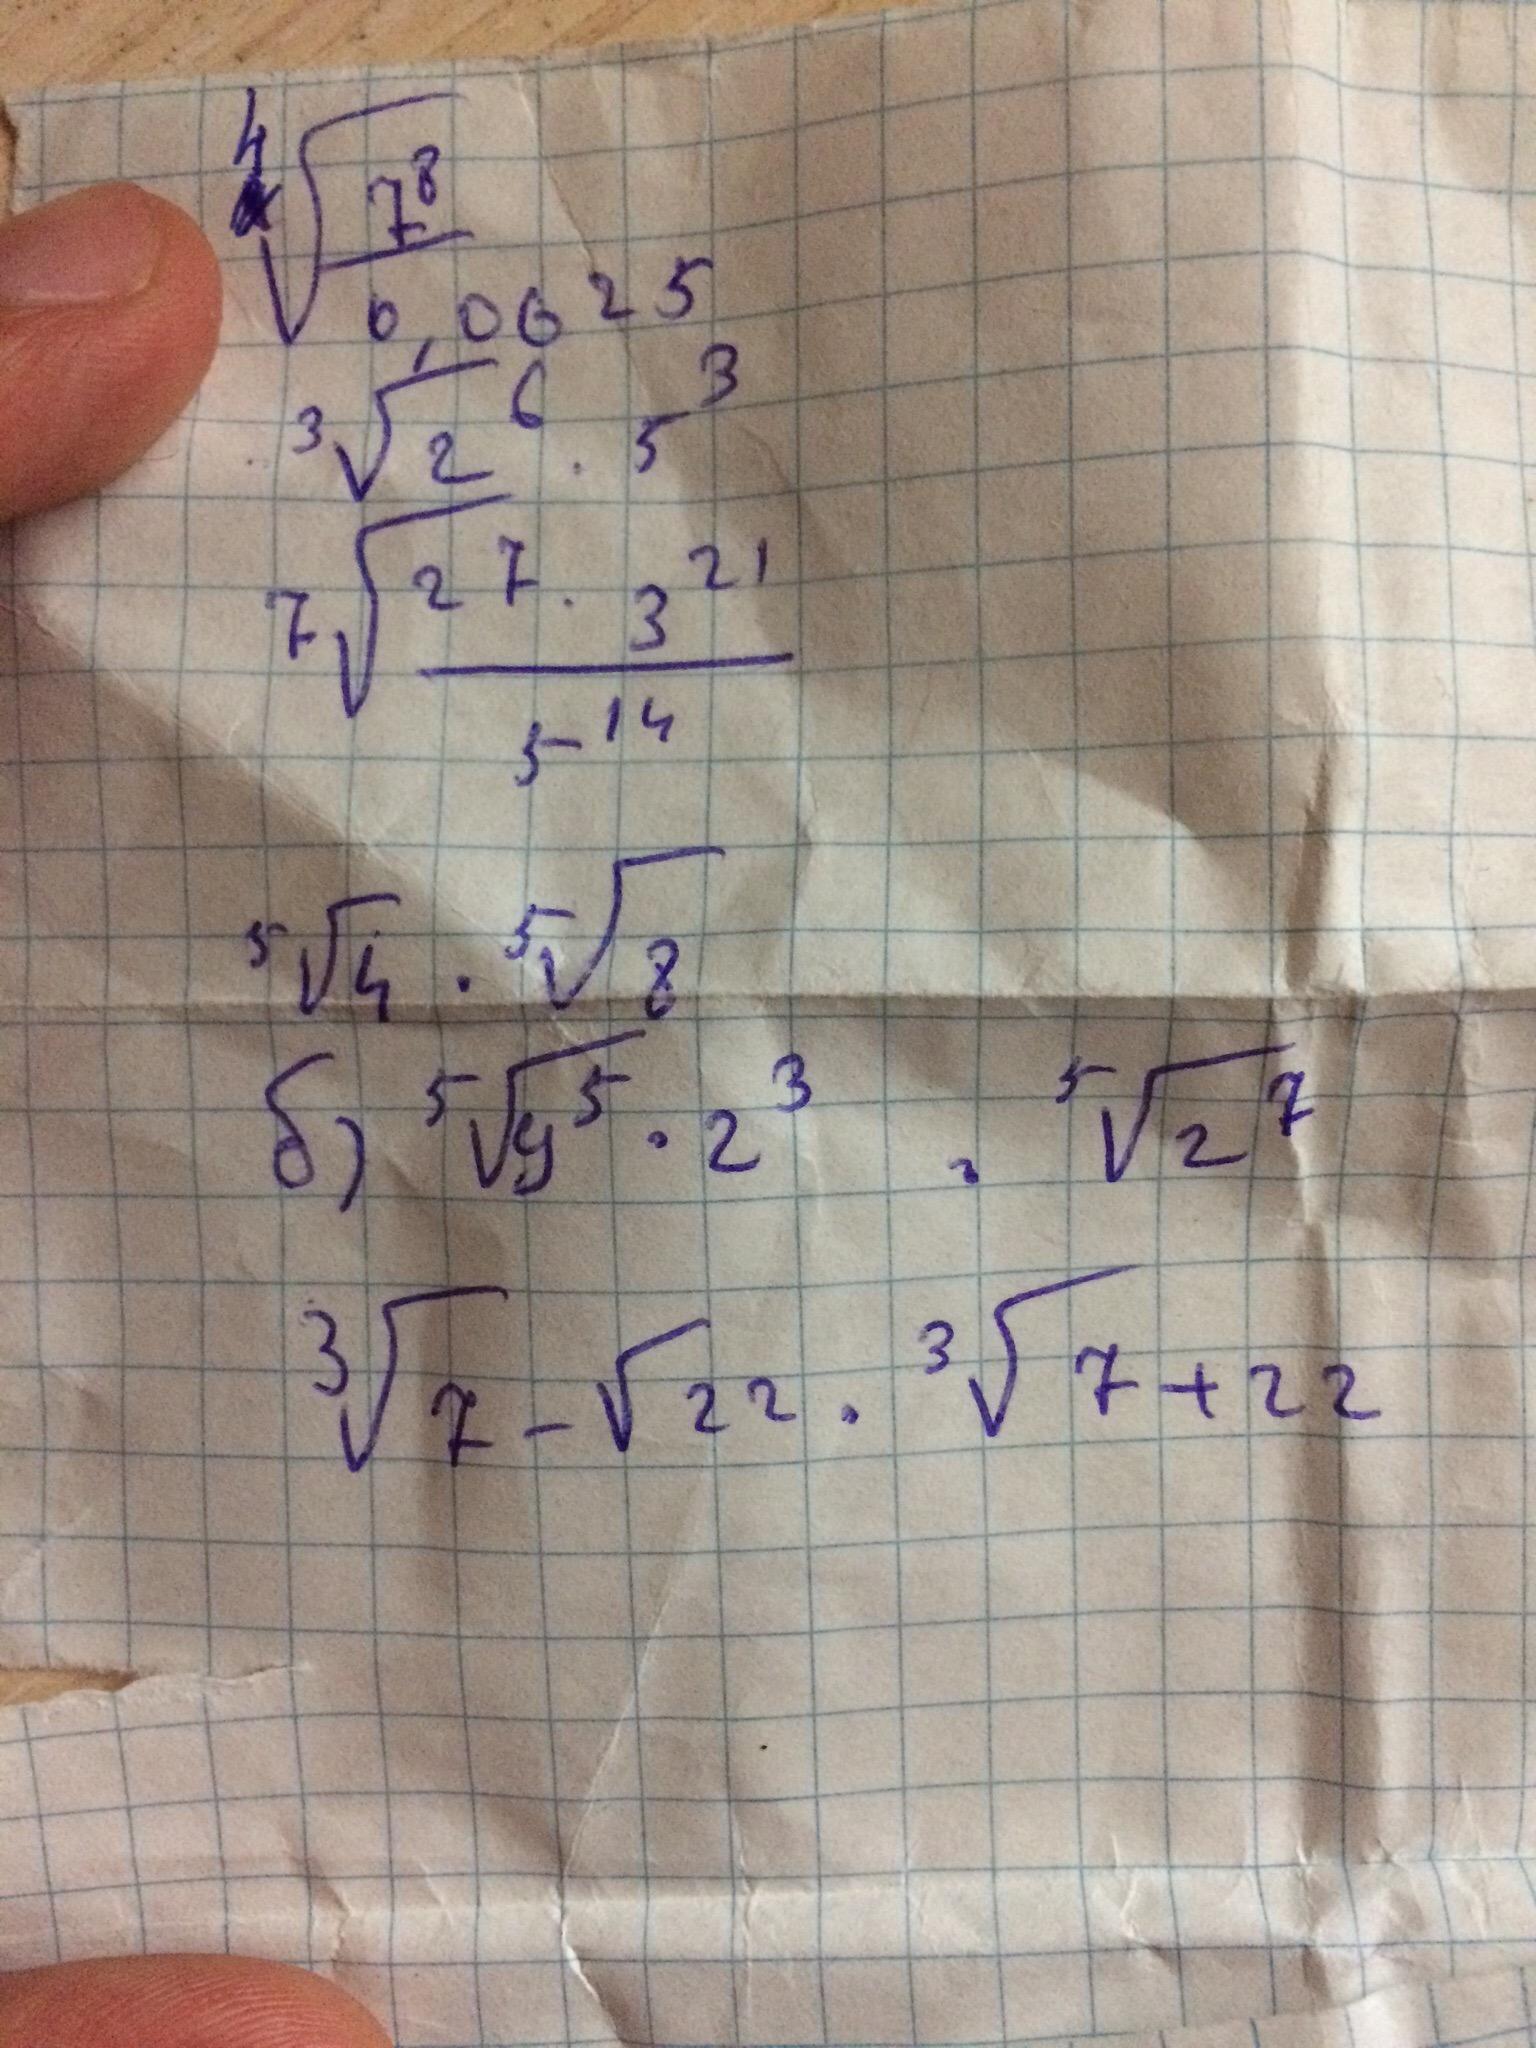 ⁴√(7⁸ / 0,0625)
³√2⁶ · 5³
⁷√(2⁷ · 3²¹ / 5¹⁴)
⁵√4 · ⁵√8
б) ⁵√9⁵ · 2³ · ⁵√2⁷
³√7 - √22 · ³√7 + 22